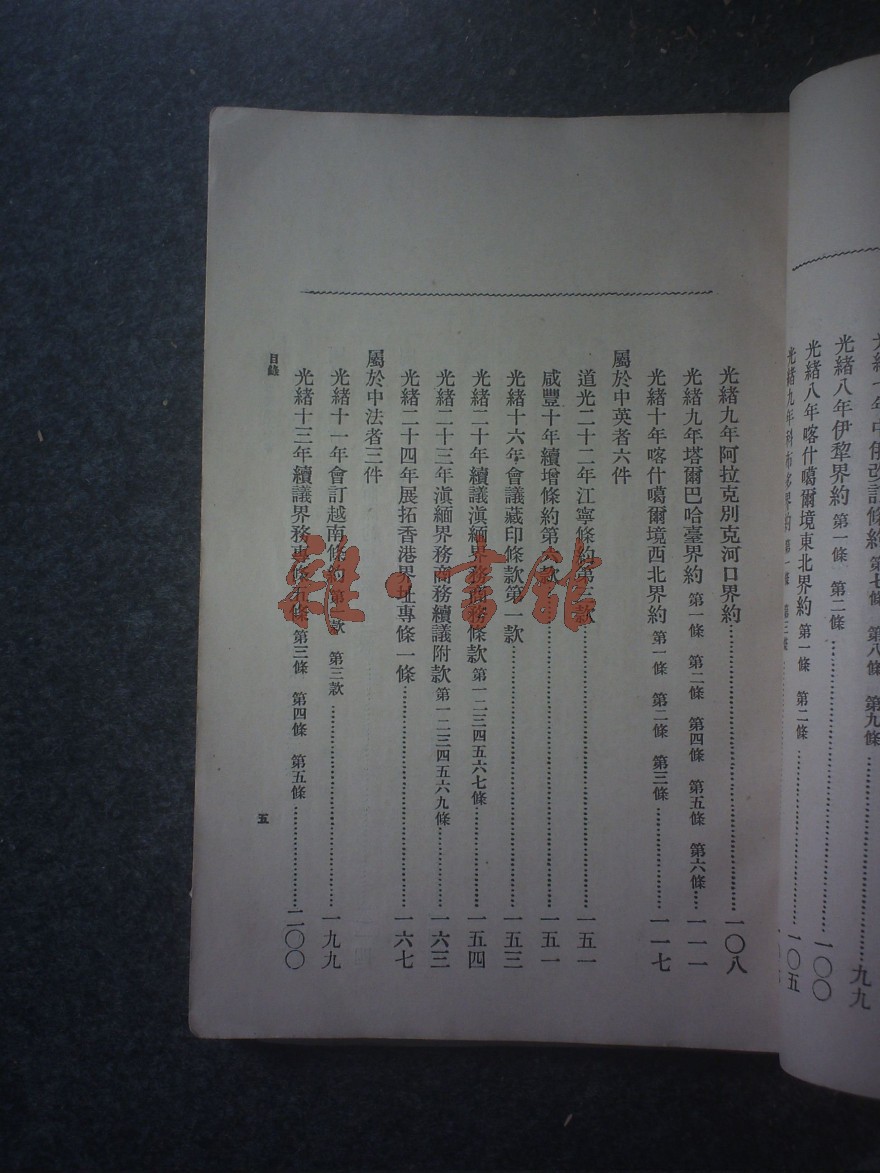 第七條 第八條 第九條 九九
光緒八年伊犂界約 第一條 第二條 一〇〇
光緒八年喀什噶爾境東北界約 第一條 第二條 一〇五
光緒九年科布多界約 第一條 第三條
光緒九年阿拉克別克河口界約 一〇八
光緒九年塔爾巴哈臺界約 第一條 第二條 第四條 第五條 第六條 一一一
光緒十年喀什噶爾境西北界約 第一條 第二條 第三條 一一七
屬於中英者六件
道光二十二年江寧條約第三款 一五一
咸豐十年續增條約第六款 一五一
光緒十六年會議藏印條款第一款 一五三
光緒二十年續議滇緬界務商務條款 第一二三四五六七條 一五四
光緒二十三年滇緬界務商務續議附款 第一二三四五六九條 一六三
光緒二十四年展拓香港界址專條一條 一六七
屬於中法者三件
光緒十一年會訂越南條約 第三款 一九九
光緒十三年續議界務專條五條 第三條 第四條 第五條 二〇〇
目錄
五
雜·書館